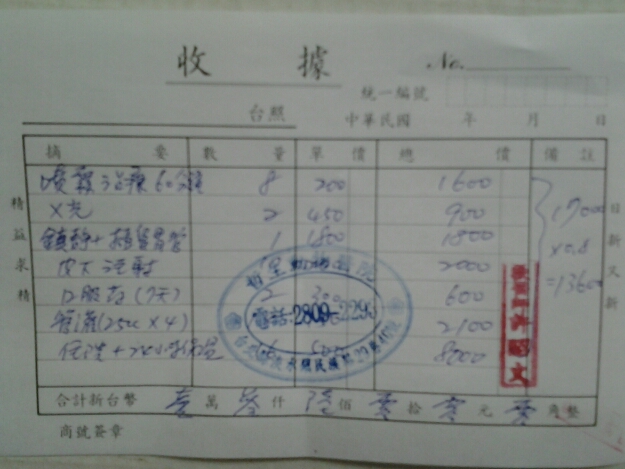 收 據 No.
統一編號
台照 中華民國 年 月 日
摘 要 數 量 單 價 總 價 備 註
噴霧治療60分鐘 8 200 1600
X光 2 450 900
鎮靜+ 1 1800 1800
皮下注射 2000
口服藥(7天) 2 300 600
(25cc X4) 2100
住院+ 8000
17000
x0.8
=13600
電話:2809-2295
精益求精
日新又新
合計新台幣 壹 萬 參 仟 陸 佰 零 拾 零 元 零 角整
商號簽章